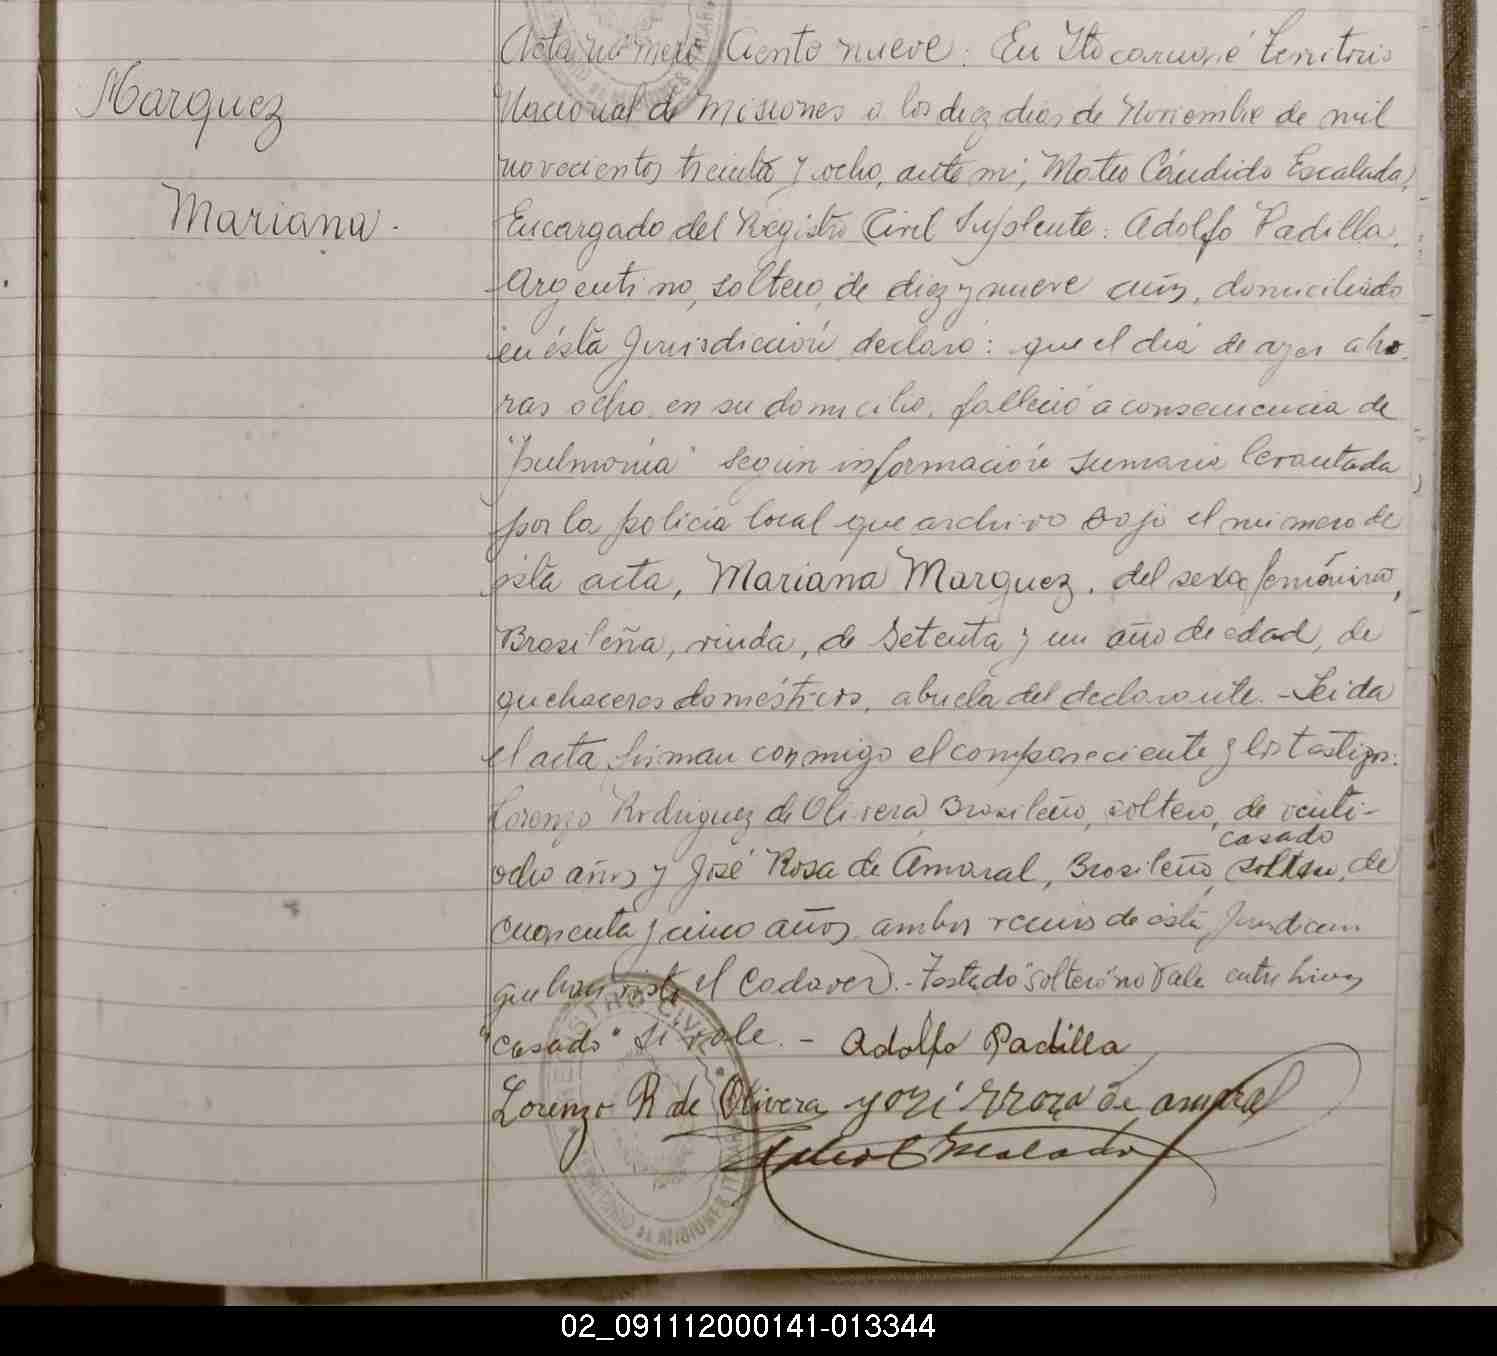 Marquez
Mariana.
Acta número Ciento nueve: En Itacaruaré Territorio
Nacional de Misiones a los diez dias de Noviembre de mil
novecientos treinta y ocho, ante mi, Mateo Cándido Escalada,
Encargado del Registro Civil Suplente: Adolfo Padilla,
Argentino, soltero, de diez y nueve años, domiciliado
en ésta Jurisdicción, declaró: que el día de ayer a ho-
ras ocho, en su domicilio, falleció a consecuencia de
"pulmonía" según información sumaria levantada
por la policía local que archivo bajo el número de
ésta acta, Mariana Marquez, del sexo femenino,
Brasileña, viuda, de Setenta y un año de edad, de
quehaceres domésticos, abuela del declarante.- Leida
el acta, firman conmigo el compareciente y los testigos:
Lorenzo Rodriguez de Olivera, Brasileño, soltero, de veinti-
casado
ocho años y José Rosa de Amaral, Brasileño, soltero, de
cuarenta y cinco años, ambos vecinos de ésta Jurisdiccion
que han visto el Cadaver.- Testado "soltero" no vale entre lineas
"casado" si vale.- Adolfo Padilla
Lorenzo R de Olivera yozé rroza de amaral
REGISTRO CIVIL
02_091112000141-013344